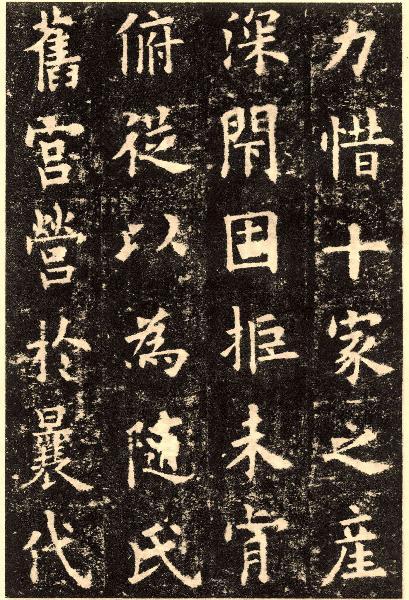 力惜十家之産
深閇固拒未肯
俯從以為隨氏
舊宮營於曩代